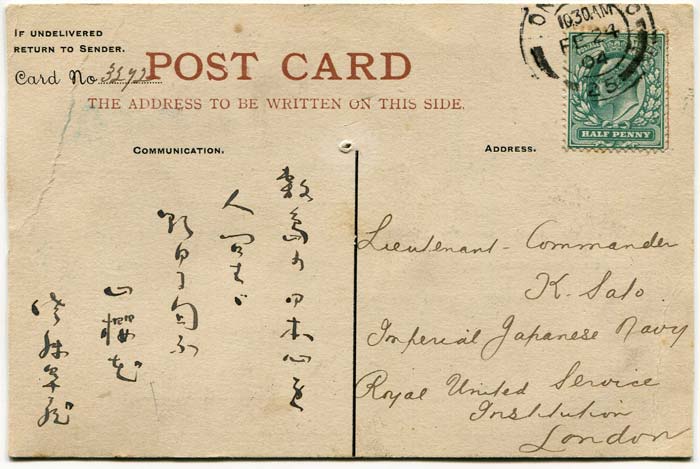 IF UNDELIVERED
RETURN TO SENDER.
Card No.
POST CARD
THE ADDRESS TO BE WRITTEN ON THIS SIDE.
10.30AM
FE 24
04
25
HALF PENNY
COMMUNICATION.
敷島の日本心を
人問はゞ
朝日に匂ふ
山桜花
ADDRESS.
Lieutenant-Commander
K. Sato.
Imperial Japanese Navy
Royal United Service
Institution
London